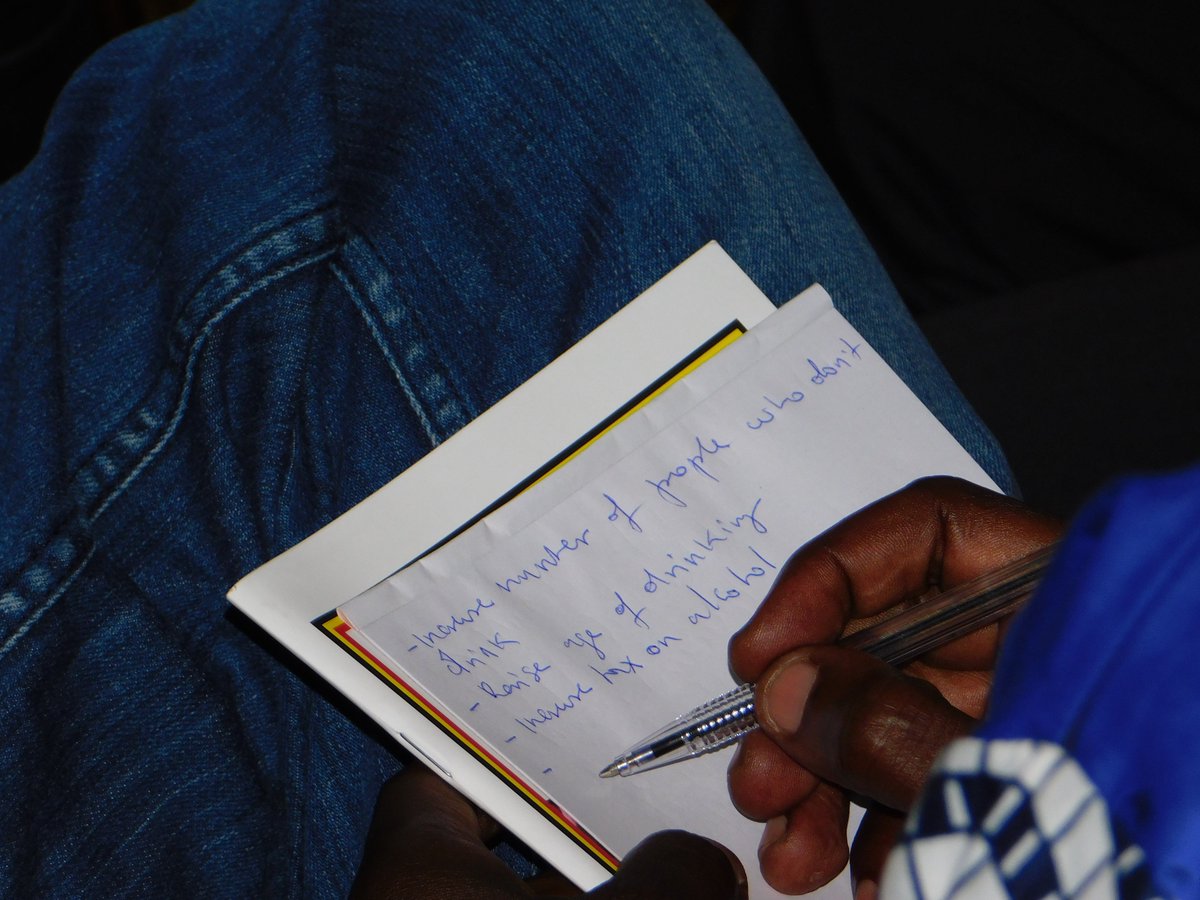 - Increase number of people who don't
drink
- Raise age of drinking
- Increase tax on alcohol
-